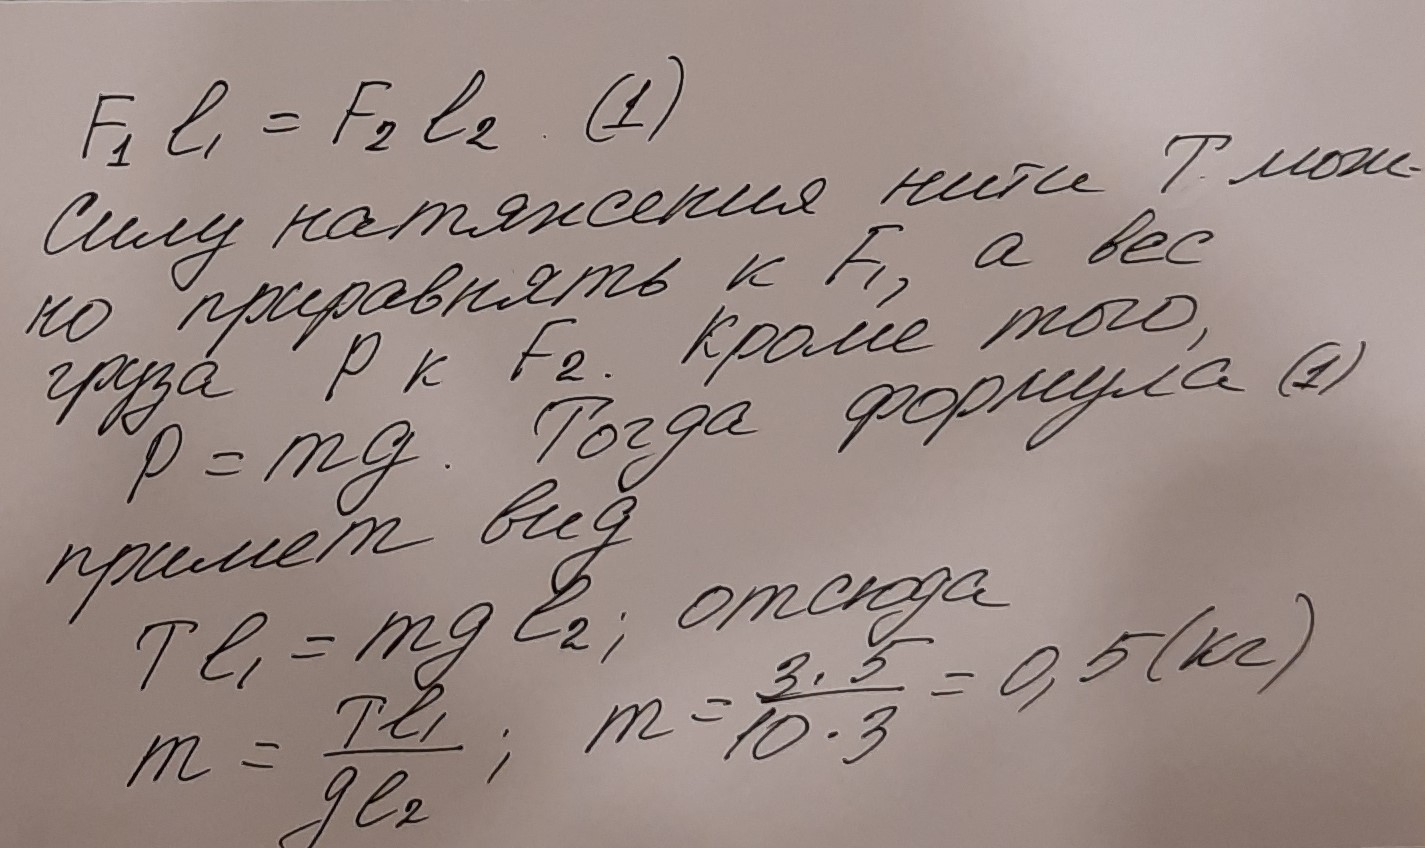 F₁ l₁ = F₂ l₂ . (1)
Силу натяжения нити T мож-
но приравнять к F₁, а вес
груза P к F₂. Кроме того,
P = mg. Тогда формула (1)
примет вид
T l₁ = mg l₂; отсюда
m = Tl₁/gl₂; m = 3·5/10·3 = 0,5 (кг)